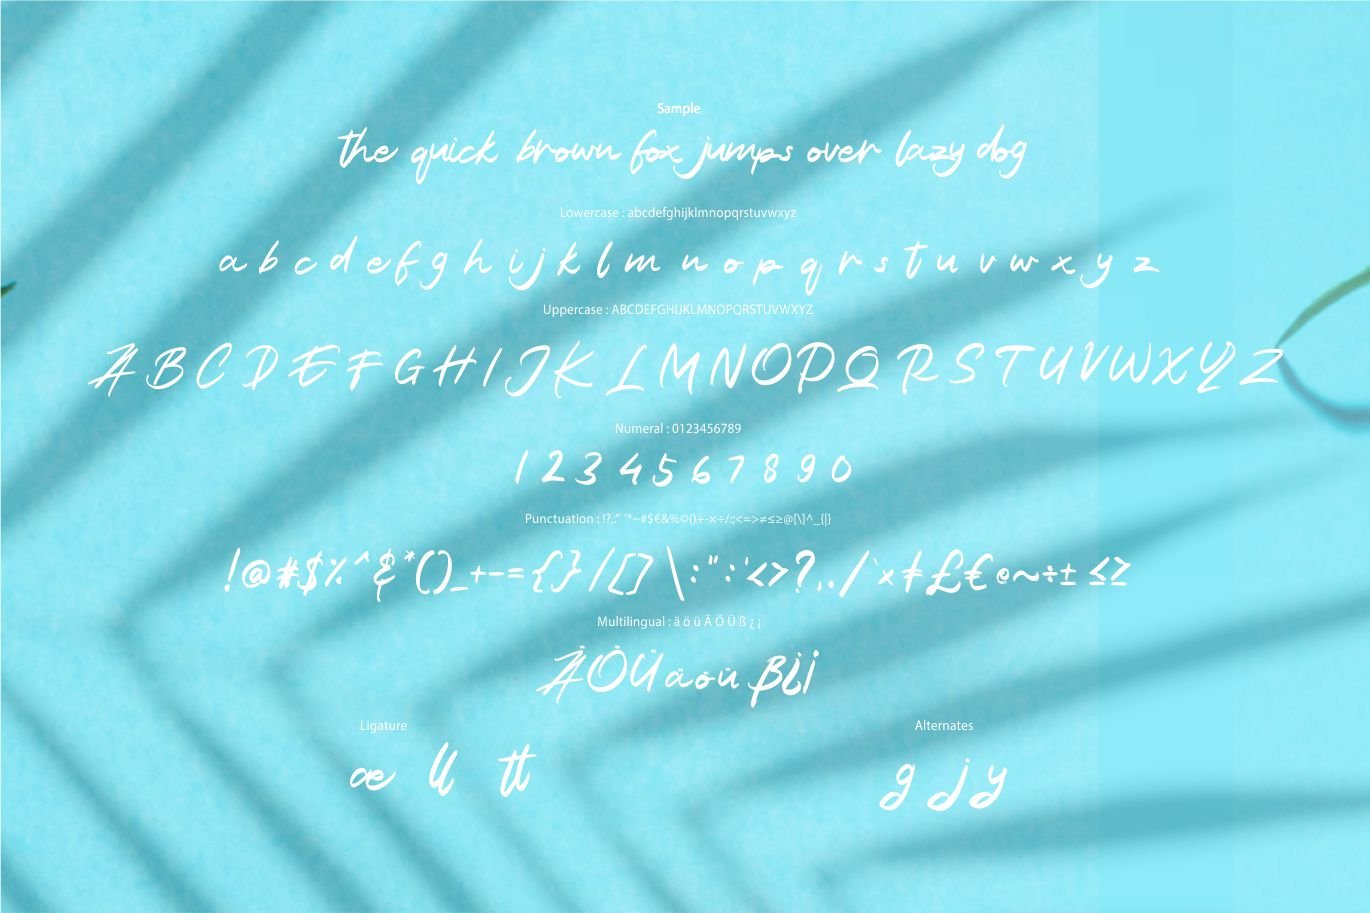 Sample
the quick brown fox jumps over lazy dog
Lowercase : abcdefghijklmnopqrstuvwxyz
a b c d e f g h i j k l m n o p q r s t u v w x y z
Uppercase : ABCDEFGHIJKLMNOPQRSTUVWXYZ
A B C D E F G H I J K L M N O P Q R S T U V W X Y Z
Numeral : 0123456789
1 2 3 4 5 6 7 8 9 0
Punctuation : !?,."`'*~#$€&%©()+-×÷/:;<=>≠≤≥@[\]^_{|}
!@#$%^&*()_+-={}/[]\:":'<>?,./`×≠£€©~÷± ≤≥
Multilingual : ä ö ü Ä Ö Ü ß ¿ ¡
ÄÖÜäöüß¿¡
Ligature Alternates
æ ll tt g j y